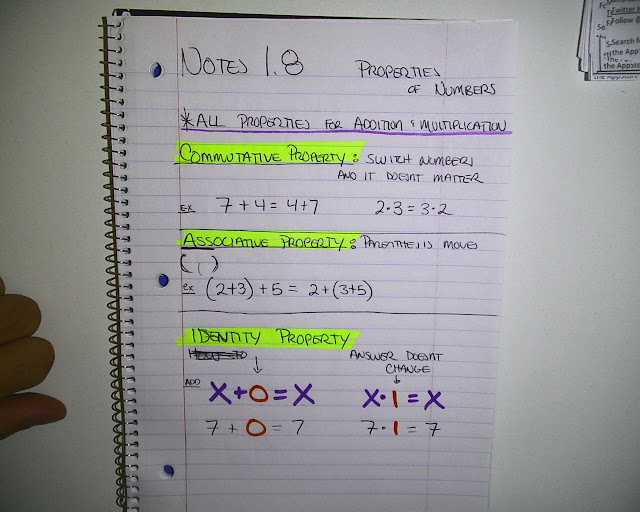 NOTES 1.8 PROPERTIES
OF NUMBERS
*ALL PROPERTIES FOR ADDITION & MULTIPLICATION
COMMUTATIVE PROPERTY: SWITCH NUMBERS
AND IT DOESNT MATTER
EX 7 + 4 = 4+7 2·3 = 3·2
ASSOCIATIVE PROPERTY: PARENTHESIS MOVES
( )
ex (2+3) + 5 = 2 + (3+5)
IDENTITY PROPERTY
ANSWER DOESNT
CHANGE
ADD X + 0 = X X · 1 = X
7 + 0 = 7 7 · 1 = 7
Twitter
Follow @
Search f
the App
the Appstore